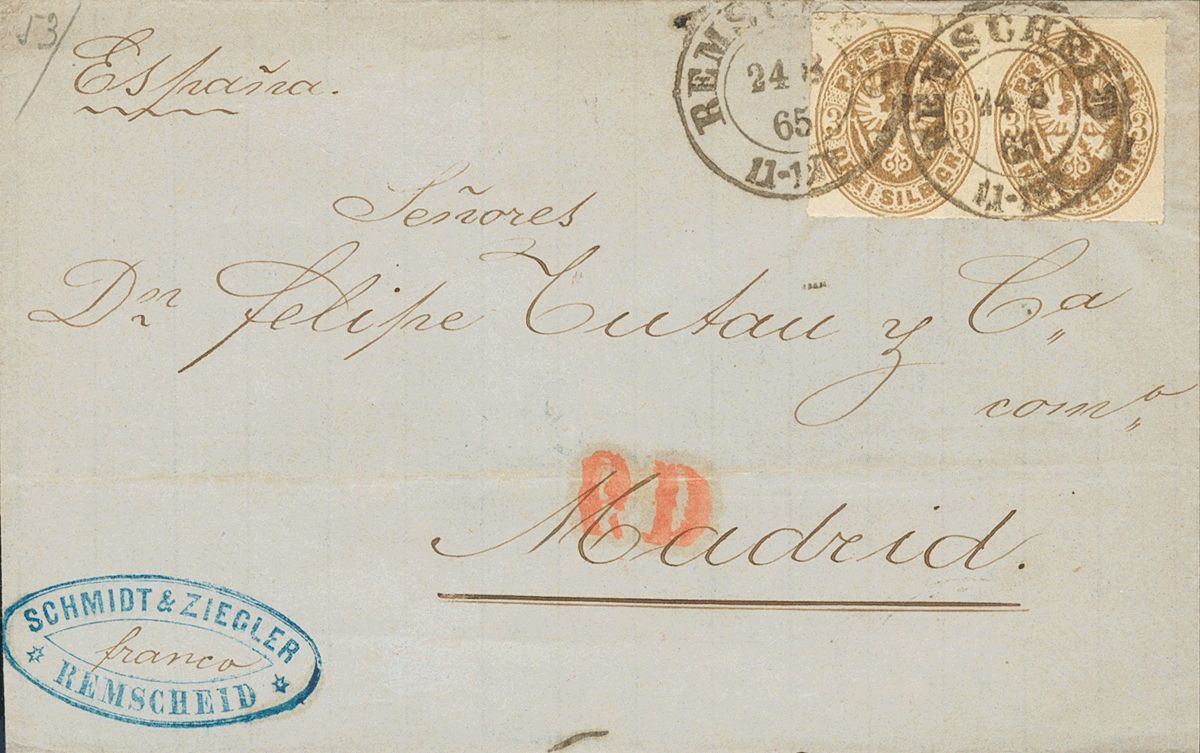 53/
España.
REMSCHEID
24 8
65
11-12
REMSCHEID
24 8
65
11-12
PREUSSEN
3 3
DREI SILBGR.
3
Señores
Dn Felipe Tutau y Ca
como
PD
Madrid.
SCHMIDT & ZIEGLER
franco
REMSCHEID